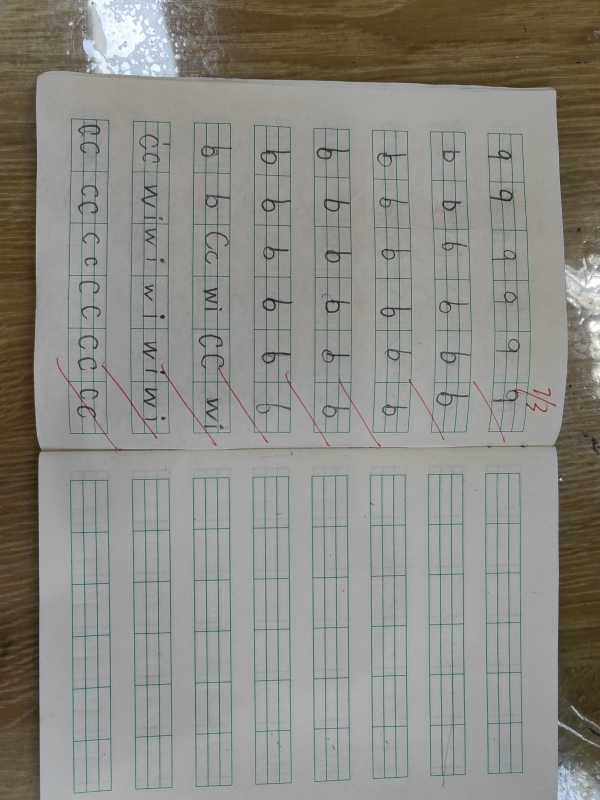 7/3
q q q q q q
b b b b b b
b b b b b b
b b b b b b
b b b b b b
b b Cc wi CC wi
Cc wi wi wi wi wi
cc cc cc cc cc cc